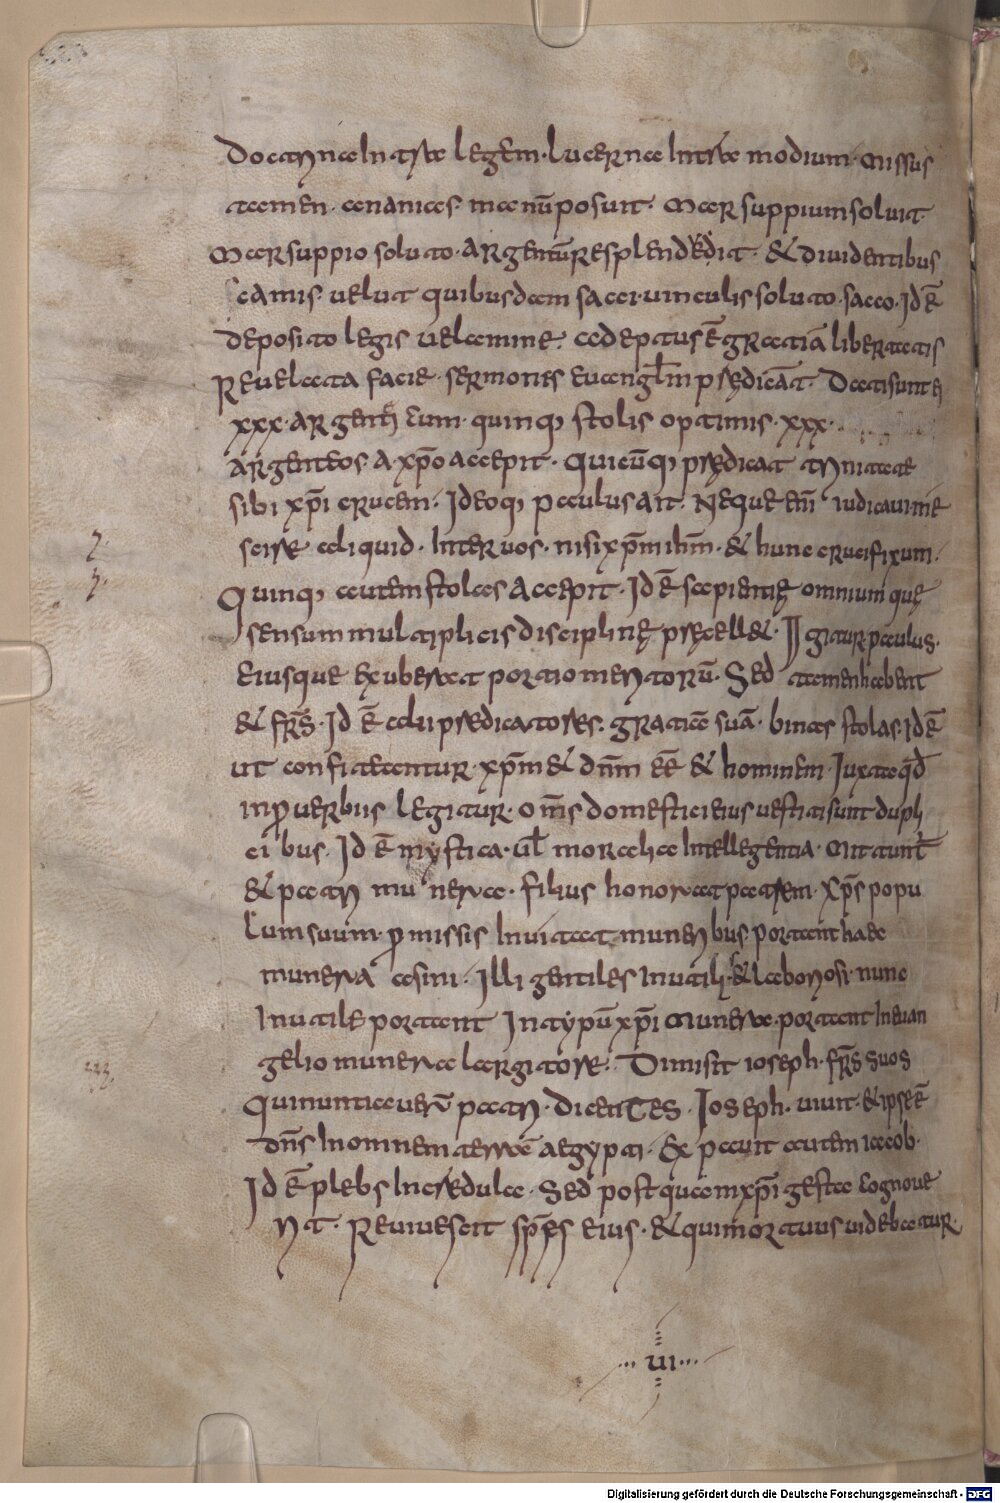 Doctrina intra legem. lucerna intra modium. missus
tamen. ananias manū posuit. Marsuppium soluit
Marsuppio soluto. argentū resplendedit. & diuidentibus
camis. uelut quibusdam sacci. uinculis soluto. sacco. Id ē
deposito legis uelamine. adeptus ē gratiā libertatis
Reuelata facie. sermones euangl̄ii prędicāt. Dati sunt ei
xxx. argentei cum. quinq; stolis optimis. xxx.
argenteos a xp̄o accepit. Quicūq; prędicat trinitate
sibi xp̄i crucem. Ideoq; paulus ait. Neque em̄ iudicaui me
scire aliquid. Inter uos. nisi xp̄m ihm̄. & hunc crucifixum.
Quinq; autem stolas accepit. Id ē sapientię omnium quę
sensum multiplicis disciplinę pręcell&. Igitur paulus.
Eiusque exuberat portio meritorū. Sed tamen habent
& frs̄. Id ē alii predicatores. gratiā suā. binas stolas. Id ē
ut confiteantur. xp̄m & dn̄m ēē & hominem. Iuxta qd̄
in ꝓuerbiis legitur. om̄s domestici eius uestiti sunt dupli
cibus. Id ē mystica. ul̄ morali intellegentia. Mittunt̄
& patri munera. filius honorat patrem. xp̄s popu
lum suum ꝓmissis inuitat muneribus. portant haec
munera asini. Illi gentiles inutili. & laboriosi. nunc
Inutile portant In typū xp̄i munera. portant In euan
gelio munera largitore. Dimisit ioseph. frs̄ suos
Qui nuntiauerū patri. dicentes. Ioseph. uiuit. & ipse ē
dn̄s In omnem terrā aegypti. Expauit autem iacob.
Id ē plebs Incredula. Sed postquam xp̄i gesta cognoue
rit. Reuiuescit sps̄ eius. & qui mortuus uidebatur
... ui ...
Digitalisierung gefördert durch die Deutsche Forschungsgemeinschaft - DFG